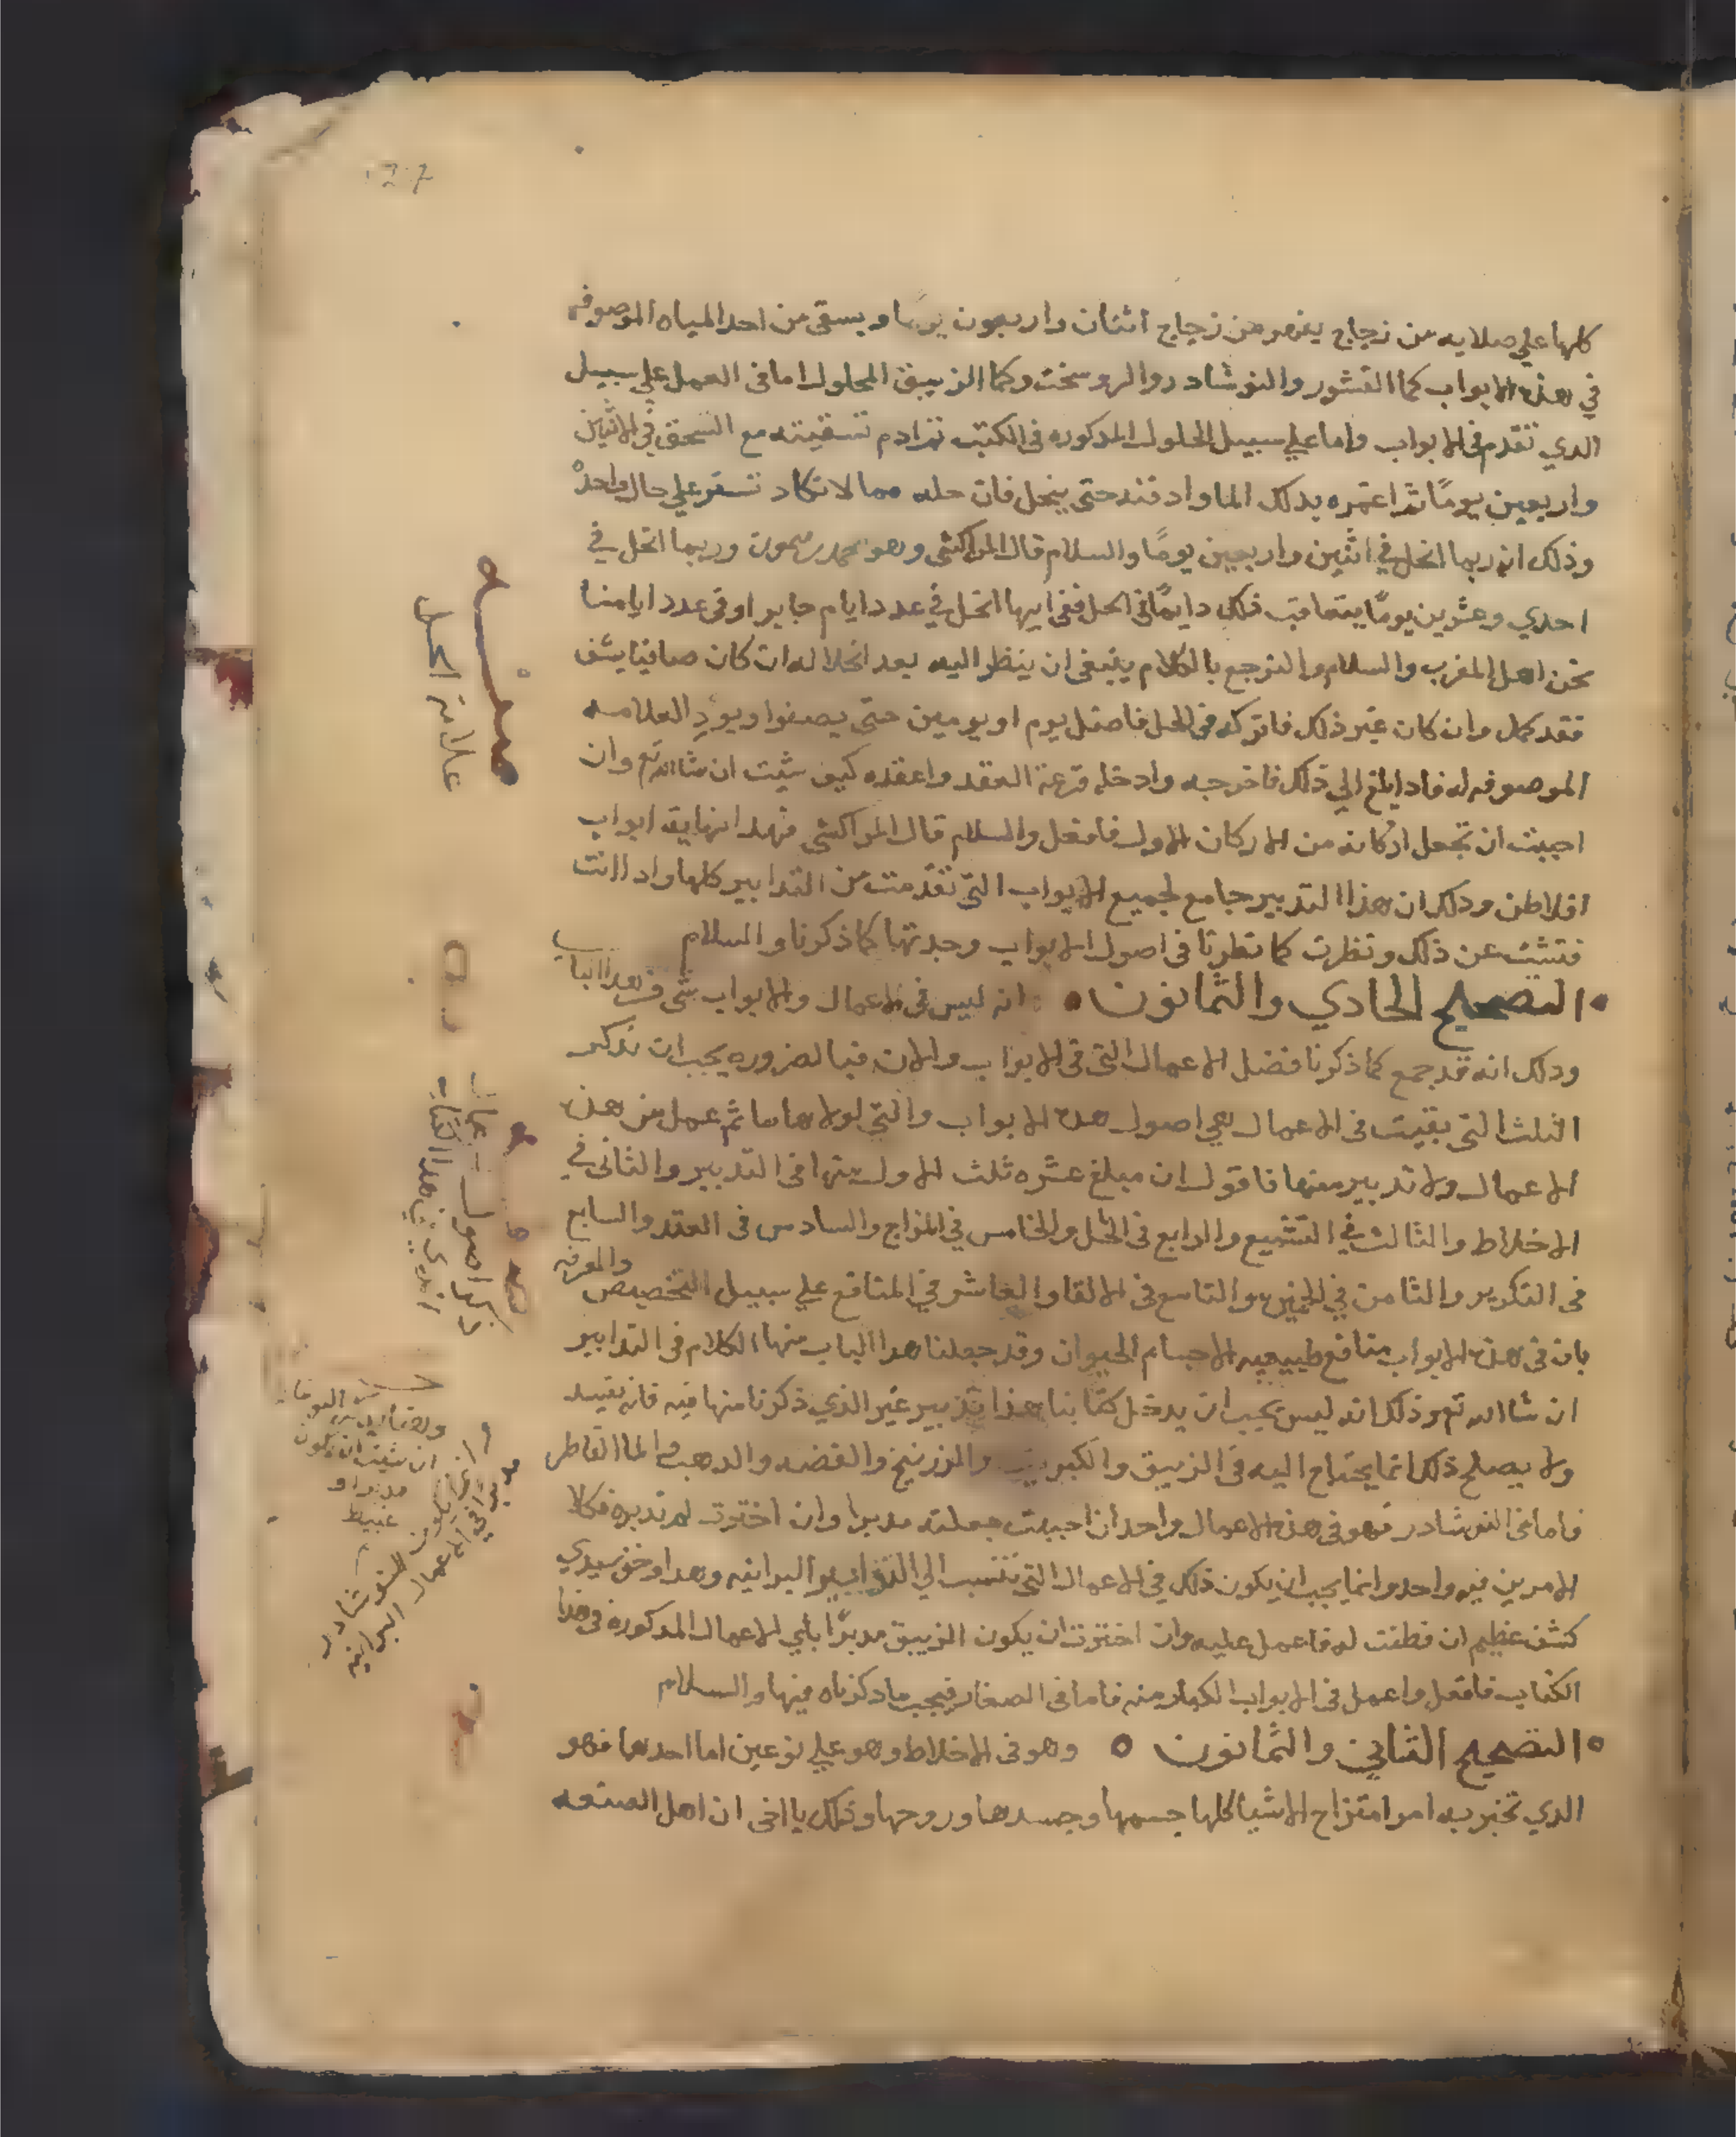 127
كلها علي صلايه من زجاج بفهر من زجاج اثنان واربعون يومًا ويسقي من احد المياه الموصوفه
في هذه الابواب كما القشور والنوشادر والروسختج وكما الزيبق المحلول اما في العمل علي سبيل
الدي تقدم في الابواب واما علي سبيل الحلول المدكوره في الكتب تم ادم تسقيته مع السحق في الاثنين
واربعين يومًا تم اغمره بدلك الما وادفنه حتى ينحل فان حله مما لا تكاد تستقر علي حال واحده
وذلك انه ربما انحل في اثنين واربعين يومًا والسلام قال المراكشي وهو محمد بن ميمون وربما انحل في
احدي وعشرين يومًا يتعاقب ذلك دايمًا في الحل ففي ايها انحل في عدد ايام جابر او في عدد ايامنا
نحن اهل المغرب والسلام ولنرجع بالكلام ينبغي ان ينظر اليه بعد انحلاله ان كان صافيا يشف
فقد كمل وان كان غير ذلك فاتركه في الحل فاصل يوم او يومين حتى يصفوا ويودِ العلامه
الموصوفه له فادا بلغ الي ذلك فاخرجه وادخله قرعة العقد واعقده كيف شيت ان شا الله تع وان
احببت ان تجعل اركانه من الاركان الاول فافعل والسلام قال المراكشي فهدا نهاية ابواب
افلاطن ودلك ان هذا التدبير جامع لجميع الابواب التي تقدمت من التدابير كلها وادا انت
فتشت عن ذلك ونظرت كما نظرنا في اصول الابواب وجدتها كما ذكرنا والسلام
التصحيح الحادي والثمانون انه ليس في الاعمال والابواب شي في هدا الباب
ودلك انه قد جمع كما ذكرنا فضل الاعمال التي في الابواب والان فبالضروره يجب ان نذكر
الثلث التي بقيت في الاعمال هي اصول هده الابواب والتي لولاها ما ثم عمل من هده
الاعمال ولا تدبير منها فاقول ان مبلغ عشره ثلث الاول منها في التدبير والثاني في
الاخلاط والثالث في التشميع والرابع في الحل والخامس في المزاج والسادس في العقد والسابع
في التكرير والثامن في التاسع في الالقا والعاشر في المنافع علي سبيل التخصيص والمعرفه
بان في هده الابواب منافع طبيعيه لاجسام الحيوان وقد جعلنا هدا الباب منها الكلام في التدابير
ان شا الله تع وذلك انه ليس يجب ان يدخل كتابنا هذا تدبير غير الذي ذكرنا منها فيه فانه يفيد
ولا يصلح ذلك انما يحتاج اليه في الزيبق والكبريت والزرنيخ والفضه والدهب والما القاطر
فاما في النوشادر فهو في هذه الاعمال واحد ان احببت جعلته مدبرا وان اخترت لم تدبره فكلا
الامرين فيه واحد وانما يجب ان يكون ذلك في الاعمال التي تنسب الي التدابير البرانيه وهدا وحق سيدي
كشف عظيم ان فطنت له فاعمل عليه وان اخترت ان يكون الزيبق مدبرًا باي الاعمال المدكوره في هذا
الكتاب فافعل واعمل في الابواب الكبار منه فاما في الصغار فيجب ما دكرناه فيها والسلام
التصحيح الثاني والثمانون وهو في الاخلاط وهو علي نوعين اما احدهما فهو
الدي تخبر به امر امتزاج الاشيا كلها جسمها وجسدها وروحها وذلك يا اخي ان اهل الصنعه
علامة الحل
ان شيت ان يكون
مدبرا او
غبيط
النوشادر
في الاعمال البرانيه